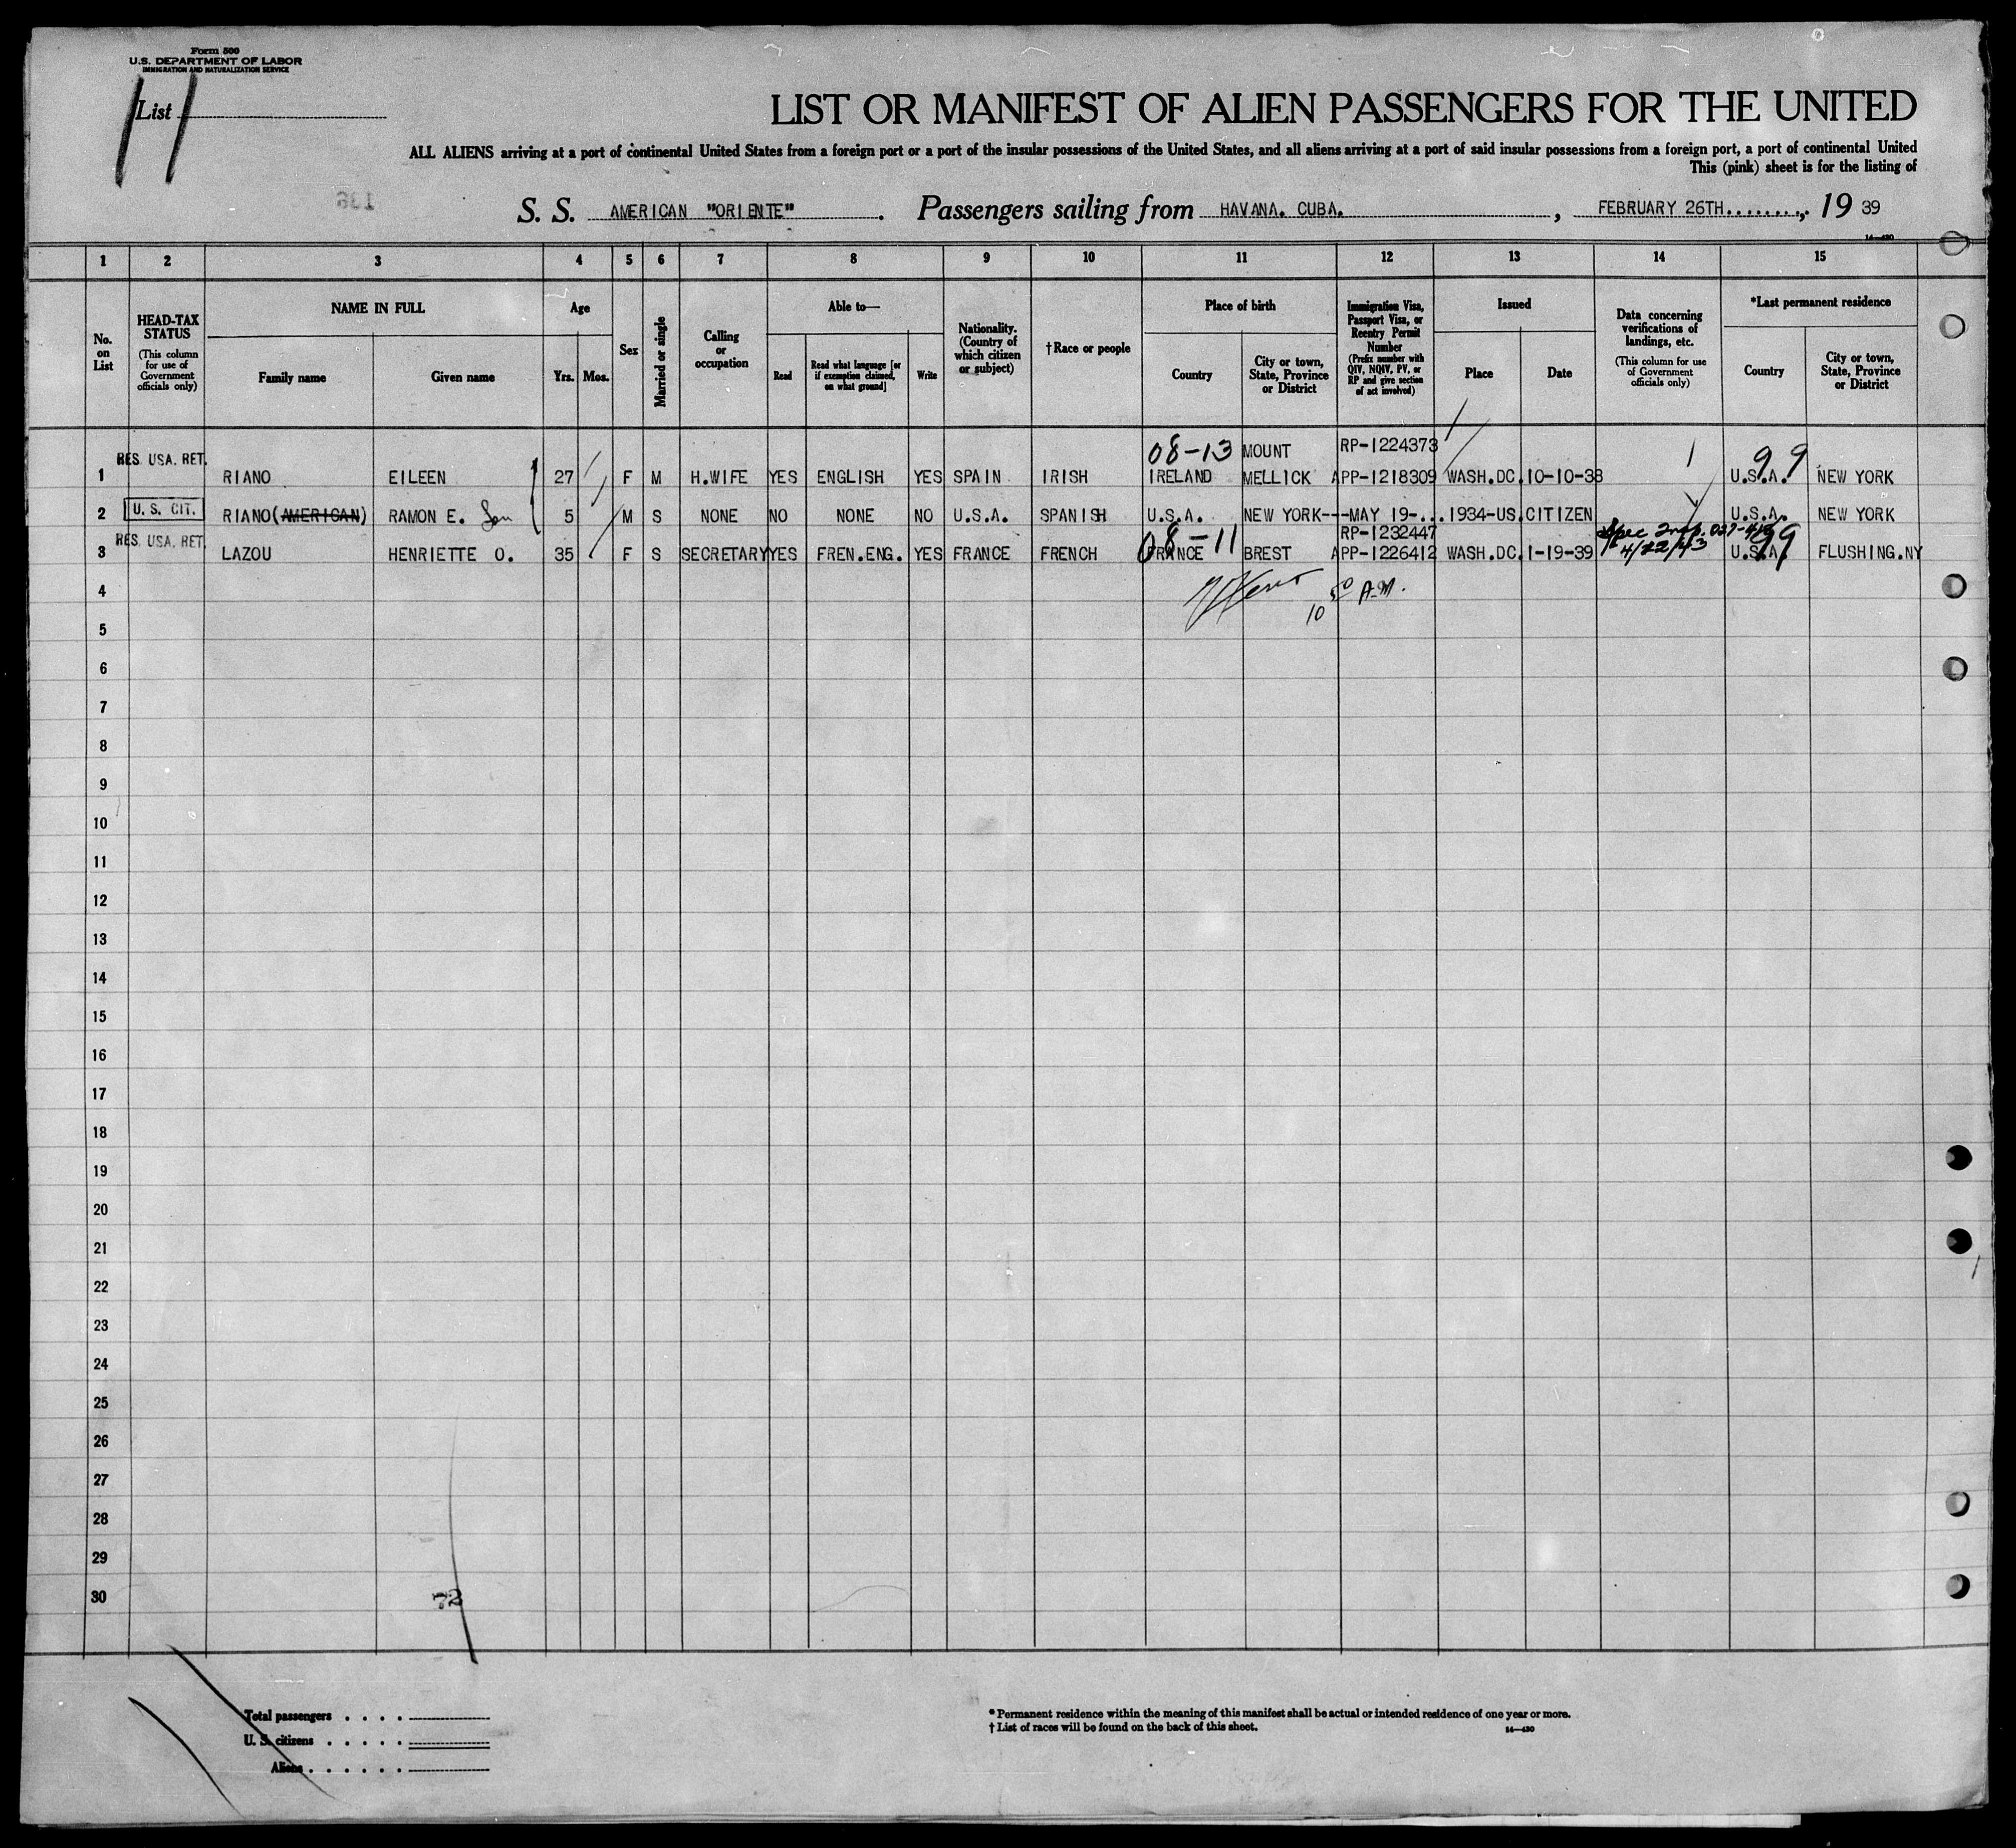 Form 500
U.S. DEPARTMENT OF LABOR
IMMIGRATION AND NATURALIZATION SERVICE
List 11
LIST OR MANIFEST OF ALIEN PASSENGERS FOR THE UNITED
ALL ALIENS arriving at a port of continental United States from a foreign port or a port of the insular possessions of the United States, and all aliens arriving at a port of said insular possessions from a foreign port, a port of continental United
This (pink) sheet is for the listing of
136
S. S. AMERICAN "ORIENTE". Passengers sailing from HAVANA. CUBA., FEBRUARY 26TH........, 19 39
14-430
1 2 3 4 5 6 7 8 9 10 11 12 13 14 15
No. on List
HEAD-TAX STATUS
(This column for use of Government officials only)
NAME IN FULL
Family name
Given name
Age
Yrs. Mos.
Sex
Married or single
Calling or occupation
Able to—
Read
Read what language [or if exemption claimed, on what ground]
Write
Nationality. (Country of which citizen or subject)
†Race or people
Place of birth
Country
City or town, State, Province or District
Immigration Visa, Passport Visa, or Reentry Permit Number
(Prefix number with QIV, NQIV, PV, or RP and give section of act involved)
Issued
Place
Date
Data concerning verifications of landings, etc.
(This column for use of Government officials only)
*Last permanent residence
Country
City or town, State, Province or District
RES. USA. RET. 08-13 MOUNT RP-1224373 99
1 RIANO EILEEN 27 F M H.WIFE YES ENGLISH YES SPAIN IRISH IRELAND MELLICK APP-1218309 WASH.DC. 10-10-38 U.S.A. NEW YORK
2 U. S. CIT. RIANO(AMERICAN) RAMON E. Son 5 M S NONE NO NONE NO U.S.A. SPANISH U.S.A. NEW YORK----MAY 19-...1934-US.CITIZEN U.S.A. NEW YORK
RES. USA. RET. 08-11 RP-1232447 99
3 LAZOU HENRIETTE O. 35 F S SECRETARY YES FREN.ENG. YES FRANCE FRENCH FRANCE BREST APP-1226412 WASH.DC. 1-19-39 4/22/43 U.S.A. FLUSHING.NY
4
10 50 A.M.
5
6
7
8
9
10
11
12
13
14
15
16
17
18
19
20
21
22
23
24
25
26
27
28
29
30
72
Total passengers . . . .
U. S. citizens . . . . .
Aliens . . . . . .
* Permanent residence within the meaning of this manifest shall be actual or intended residence of one year or more.
† List of races will be found on the back of this sheet.
14-430